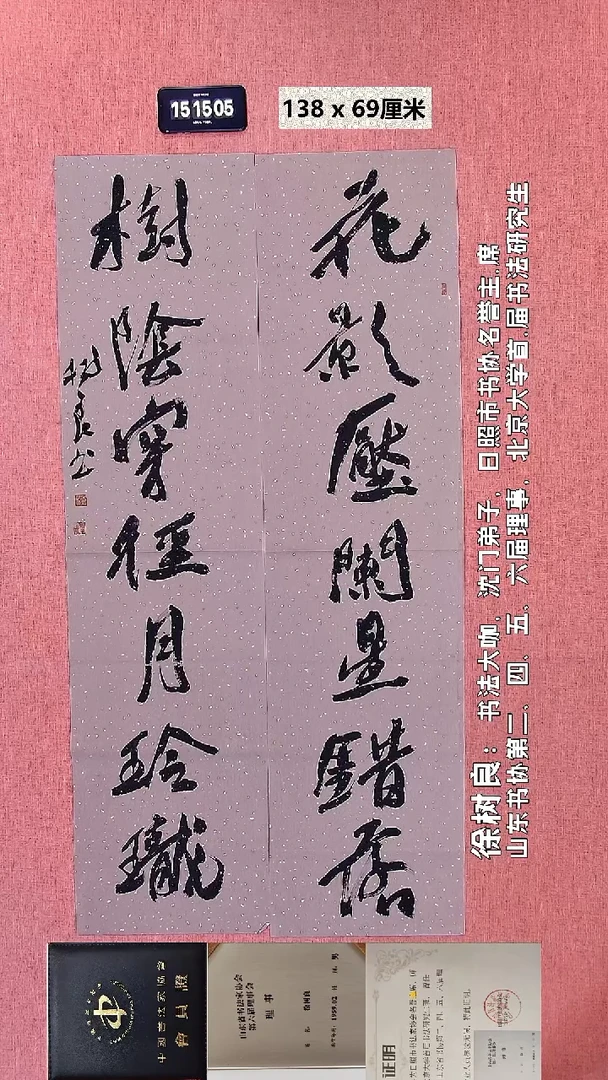 15 15 05
138 x 69厘米
花影壓闌星錯落
樹陰穿徑月玲瓏
树良书
徐树良：书法大咖，沈门弟子，日照市书协名誉主.席
山东书协第二、四、五、六届理事，北京大学首.届书法研究生
中國書法家協會
會員證
山东省书法家协会
第六届理事会
理 事
证明